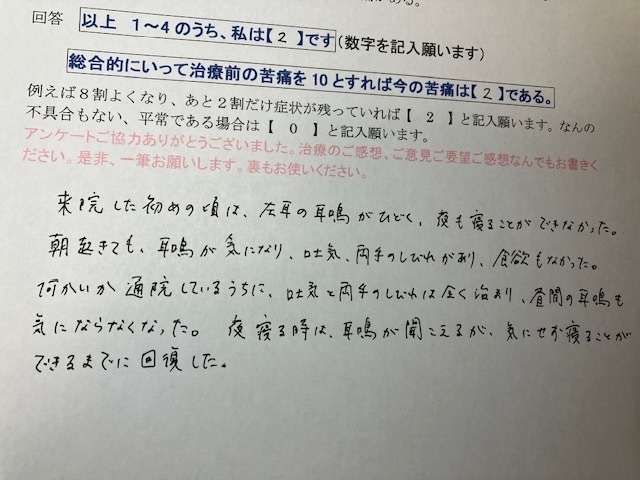 がある。
回答 以上 1～4のうち、私は【 2 】です(数字を記入願います)
総合的にいって治療前の苦痛を10とすれば今の苦痛は【 2 】である。
例えば８割よくなり、あと２割だけ症状が残っていれば【 2 】と記入願います。なんの
不具合もない、平常である場合は【 0 】と記入願います。
アンケートご協力ありがとうございました。治療のご感想、ご意見ご要望ご感想なんでもお書きく
ださい。是非、一筆お願いします。裏もお使いください。
来院した初めの頃は、左耳の耳鳴がひどく、夜も寝ることができなかった。
朝起きても、耳鳴が気になり、吐気、両手のしびれがあり、食欲もなかった。
何かいか通院しているうちに、吐気と両手のしびれは全く治まり、昼間の耳鳴も
気にならなくなった。夜寝る時は、耳鳴が聞こえるが、気にせず寝ることが
できるまでに回復した。